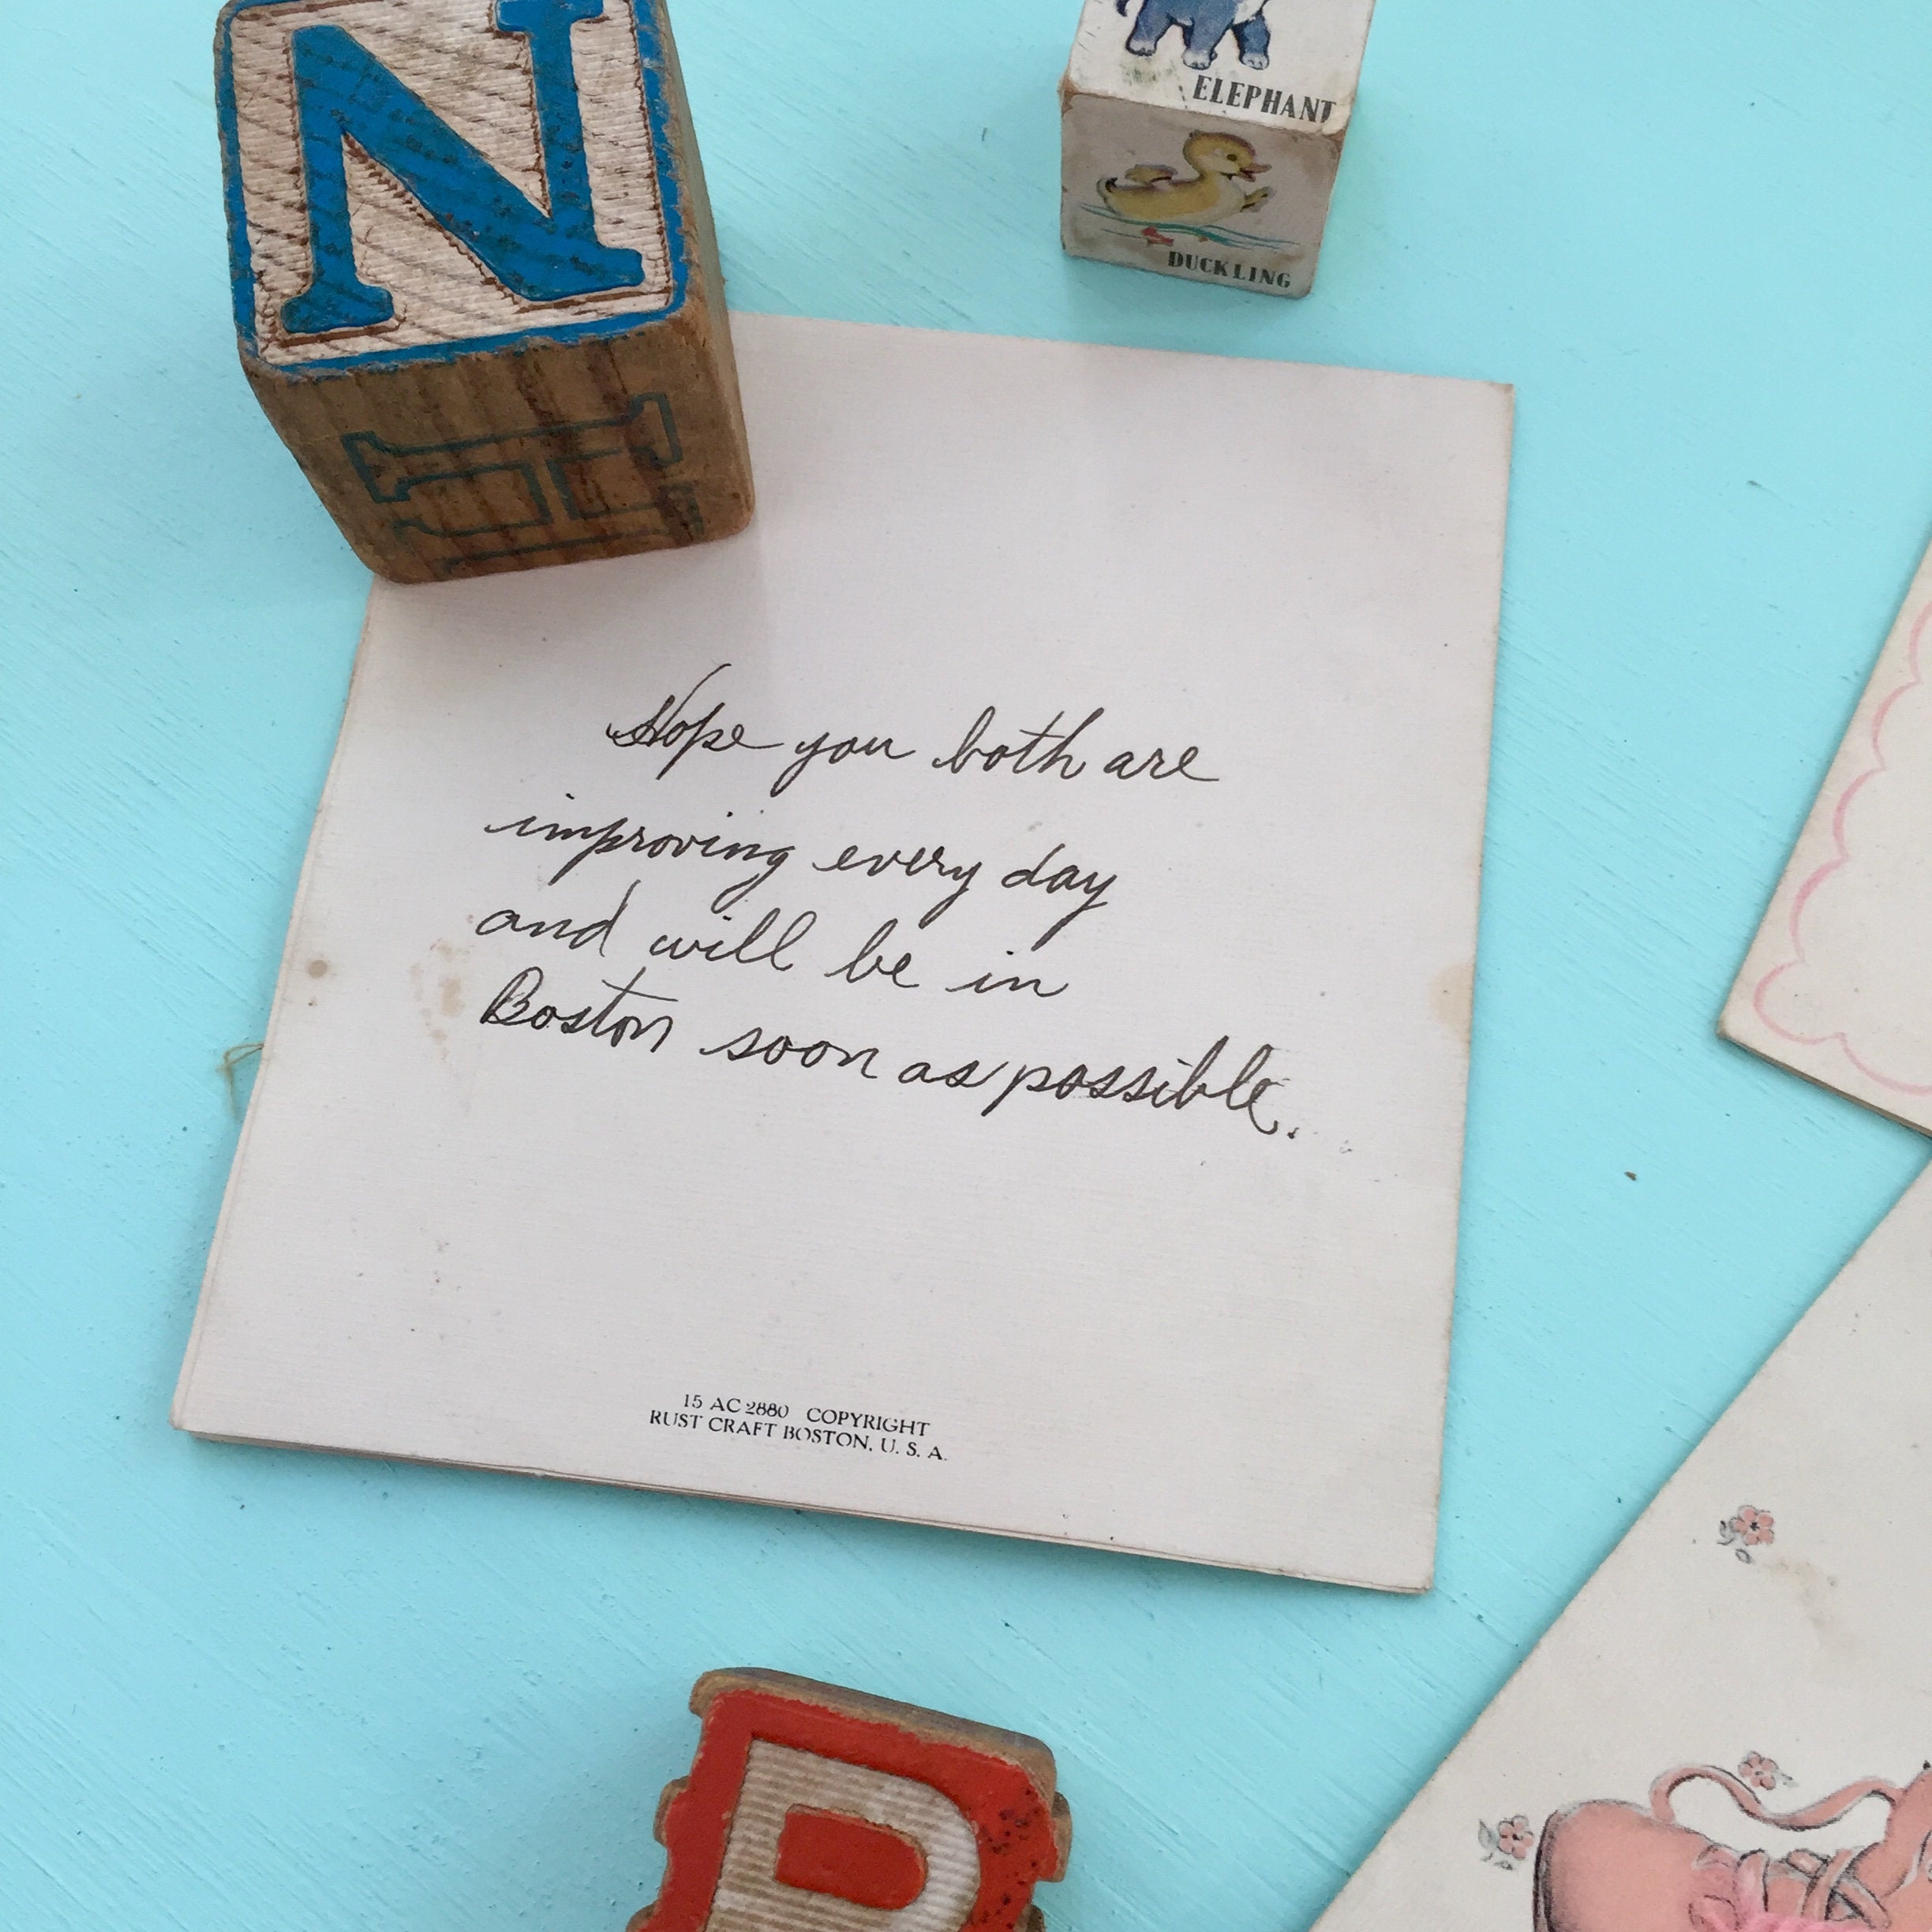 N
ELEPHANT
DUCKLING
H
Hope you both are
improving every day
and will be in
Boston soon as possible.
15 AC 2880 COPYRIGHT
RUST CRAFT BOSTON, U. S. A.